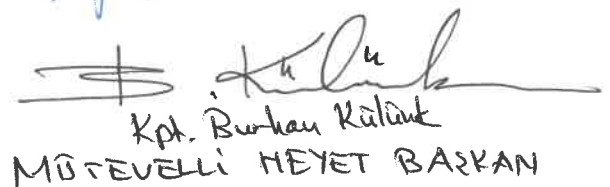 B. Külünk
Kpt. Burhan Külünk
MÜTEVELLİ HEYET BAŞKAN